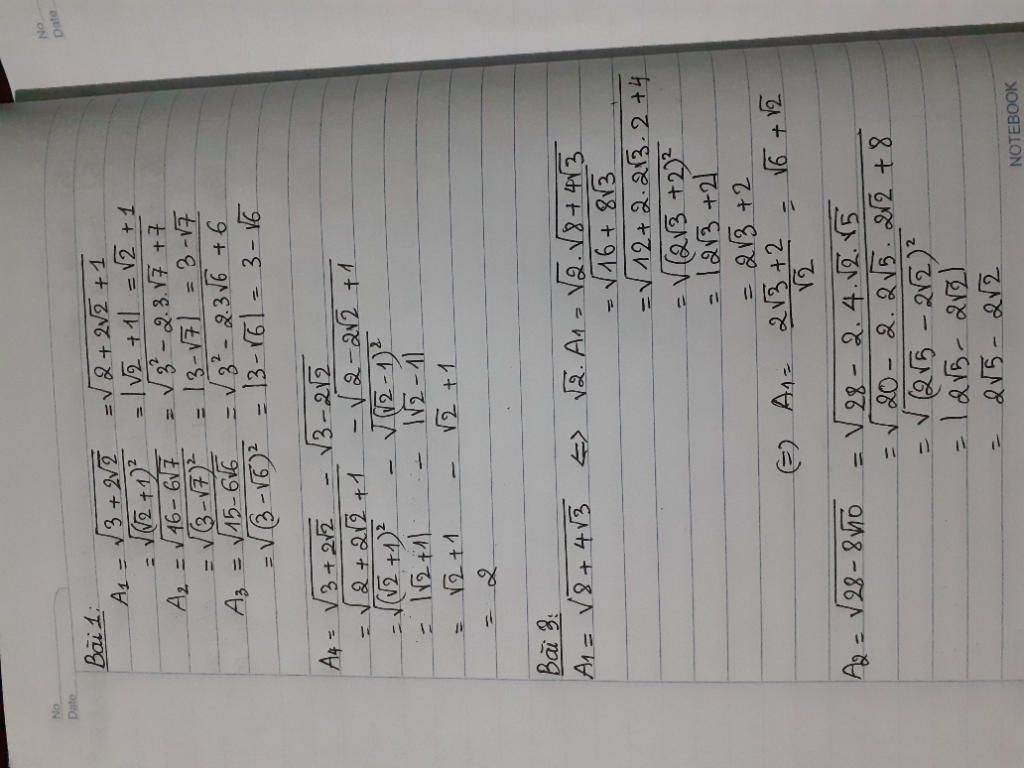 No
Date
No
Date
Bài 1:
A₁ = √(3 + 2√2) = √(2 + 2√2 + 1)
= √((√2 + 1)²) = |√2 + 1| = √2 + 1
A₂ = √(16 - 6√7) = √(3² - 2.3.√7 + 7)
= √((3 - √7)²) = |3 - √7| = 3 - √7
A₃ = √(15 - 6√6) = √(3² - 2.3√6 + 6)
= √((3 - √6)²) = |3 - √6| = 3 - √6
A₄ = √(3 + 2√2) - √(3 - 2√2)
= √(2 + 2√2 + 1) - √(2 - 2√2 + 1)
= √((√2 + 1)²) - √((√2 - 1)²)
= |√2 + 1| - |√2 - 1|
= √2 + 1 - √2 + 1
= 2
Bài 3:
A₁ = √(8 + 4√3) <=> √2 . A₁ = √2 . √(8 + 4√3)
= √(16 + 8√3)
= √(12 + 2 . 2√3 . 2 + 4)
= √((2√3 + 2)²)
= |2√3 + 2|
= 2√3 + 2
(=) A₁ = (2√3 + 2)/√2 = √6 + √2
A₂ = √(28 - 8√10) = √(28 - 2 . 4 . √2 . √5)
= √(20 - 2 . 2√5 . 2√2 + 8)
= √((2√5 - 2√2)²)
= |2√5 - 2√2|
= 2√5 - 2√2
NOTEBOOK